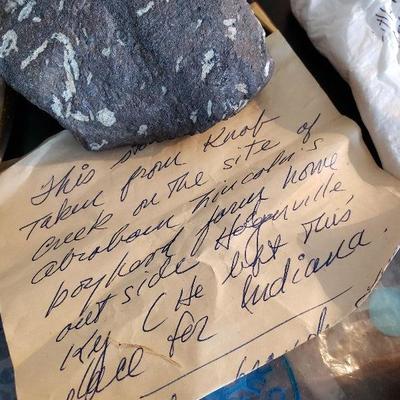 This
Taken from Knob
Creek on the site of
abraham Lincoln's
boyhood farm home
out side Hogenville
Ky. (He left This
place for Indiana.